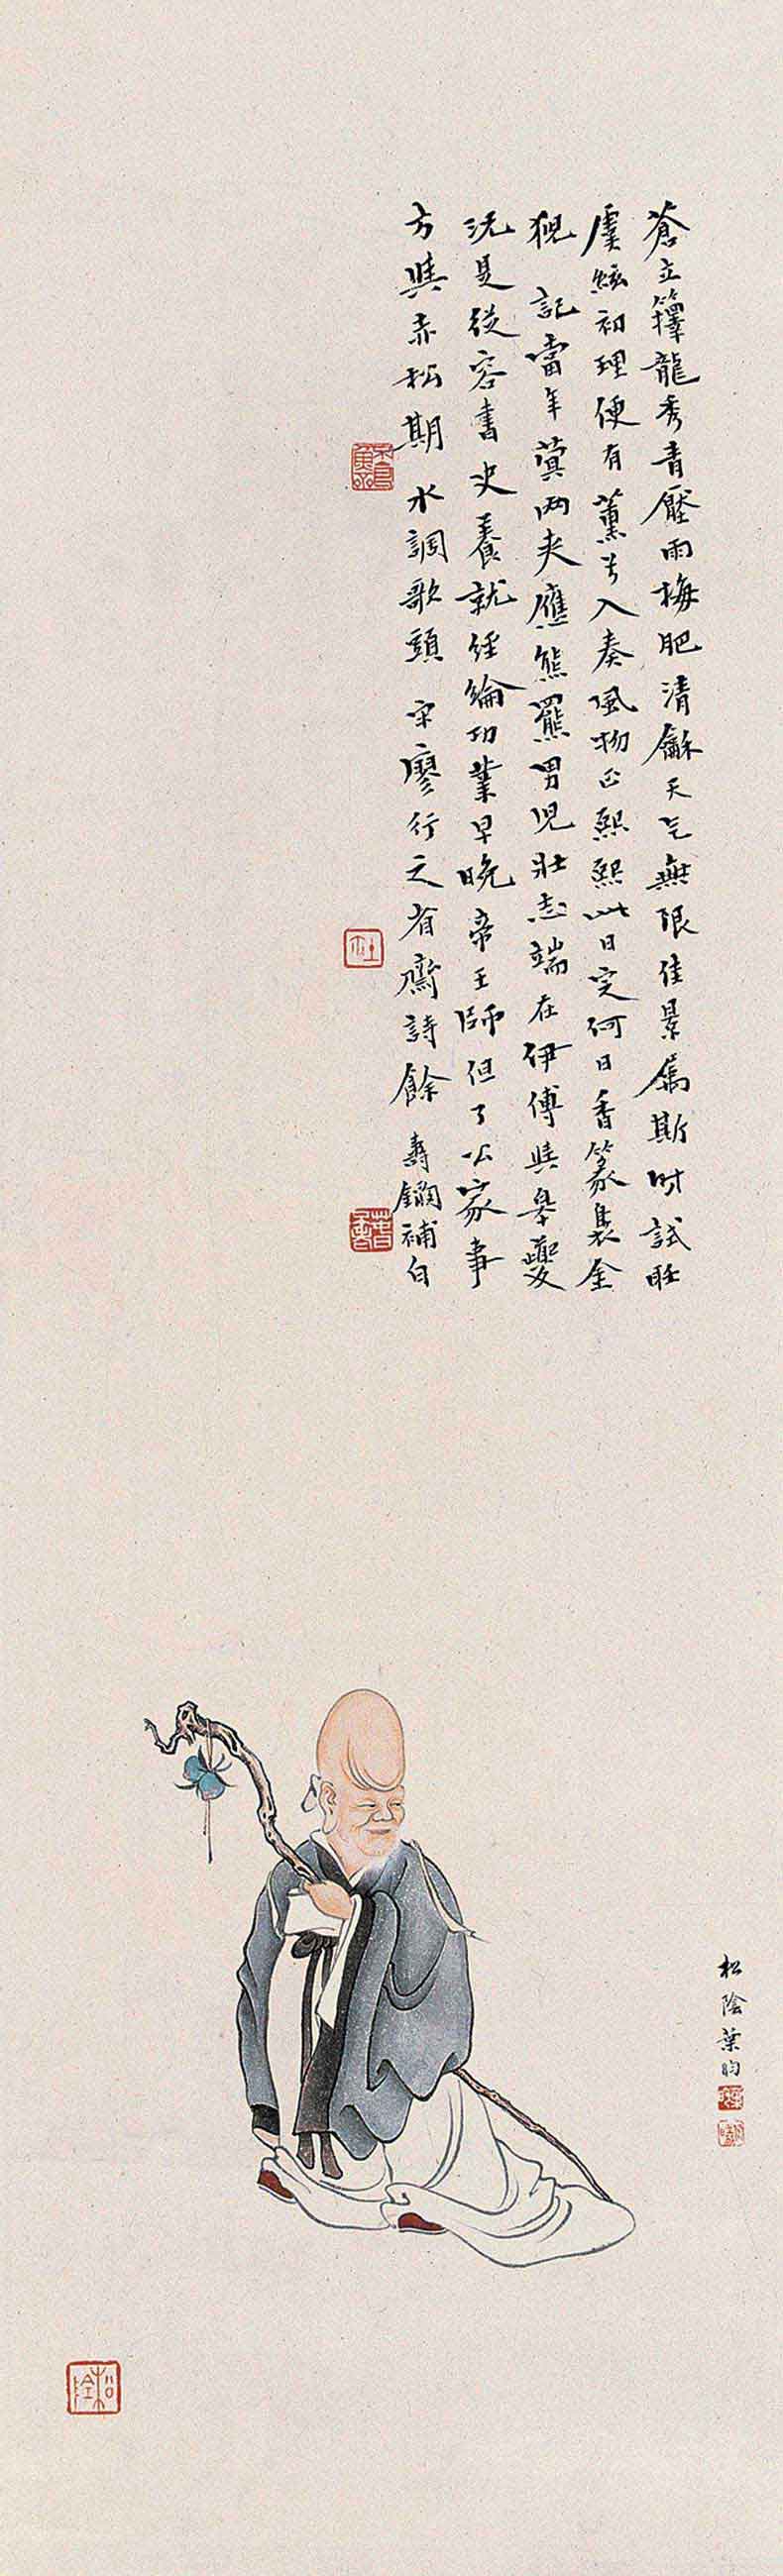 蒼立籜龍秀青壓雨梅肥清龢天气無限佳景屬斯时試聽
虞絃初理便有薰兮入奏風物正熙熙此日定何日香篆裊金
猊 記當年蓂两莢應熊羆男兒壯志端在伊傅與皋夔
況是從容書史養就經綸功業早晚帝王師但了公家事
方與赤松期 水調歌頭 宋廖行之省齋詩餘 壽鑈補白
松陰葉昀